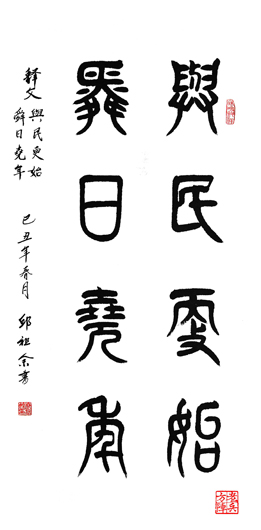 與民更始
舜日堯年
釋文 與民更始
舜日堯年
己丑年春月 邱祖余書